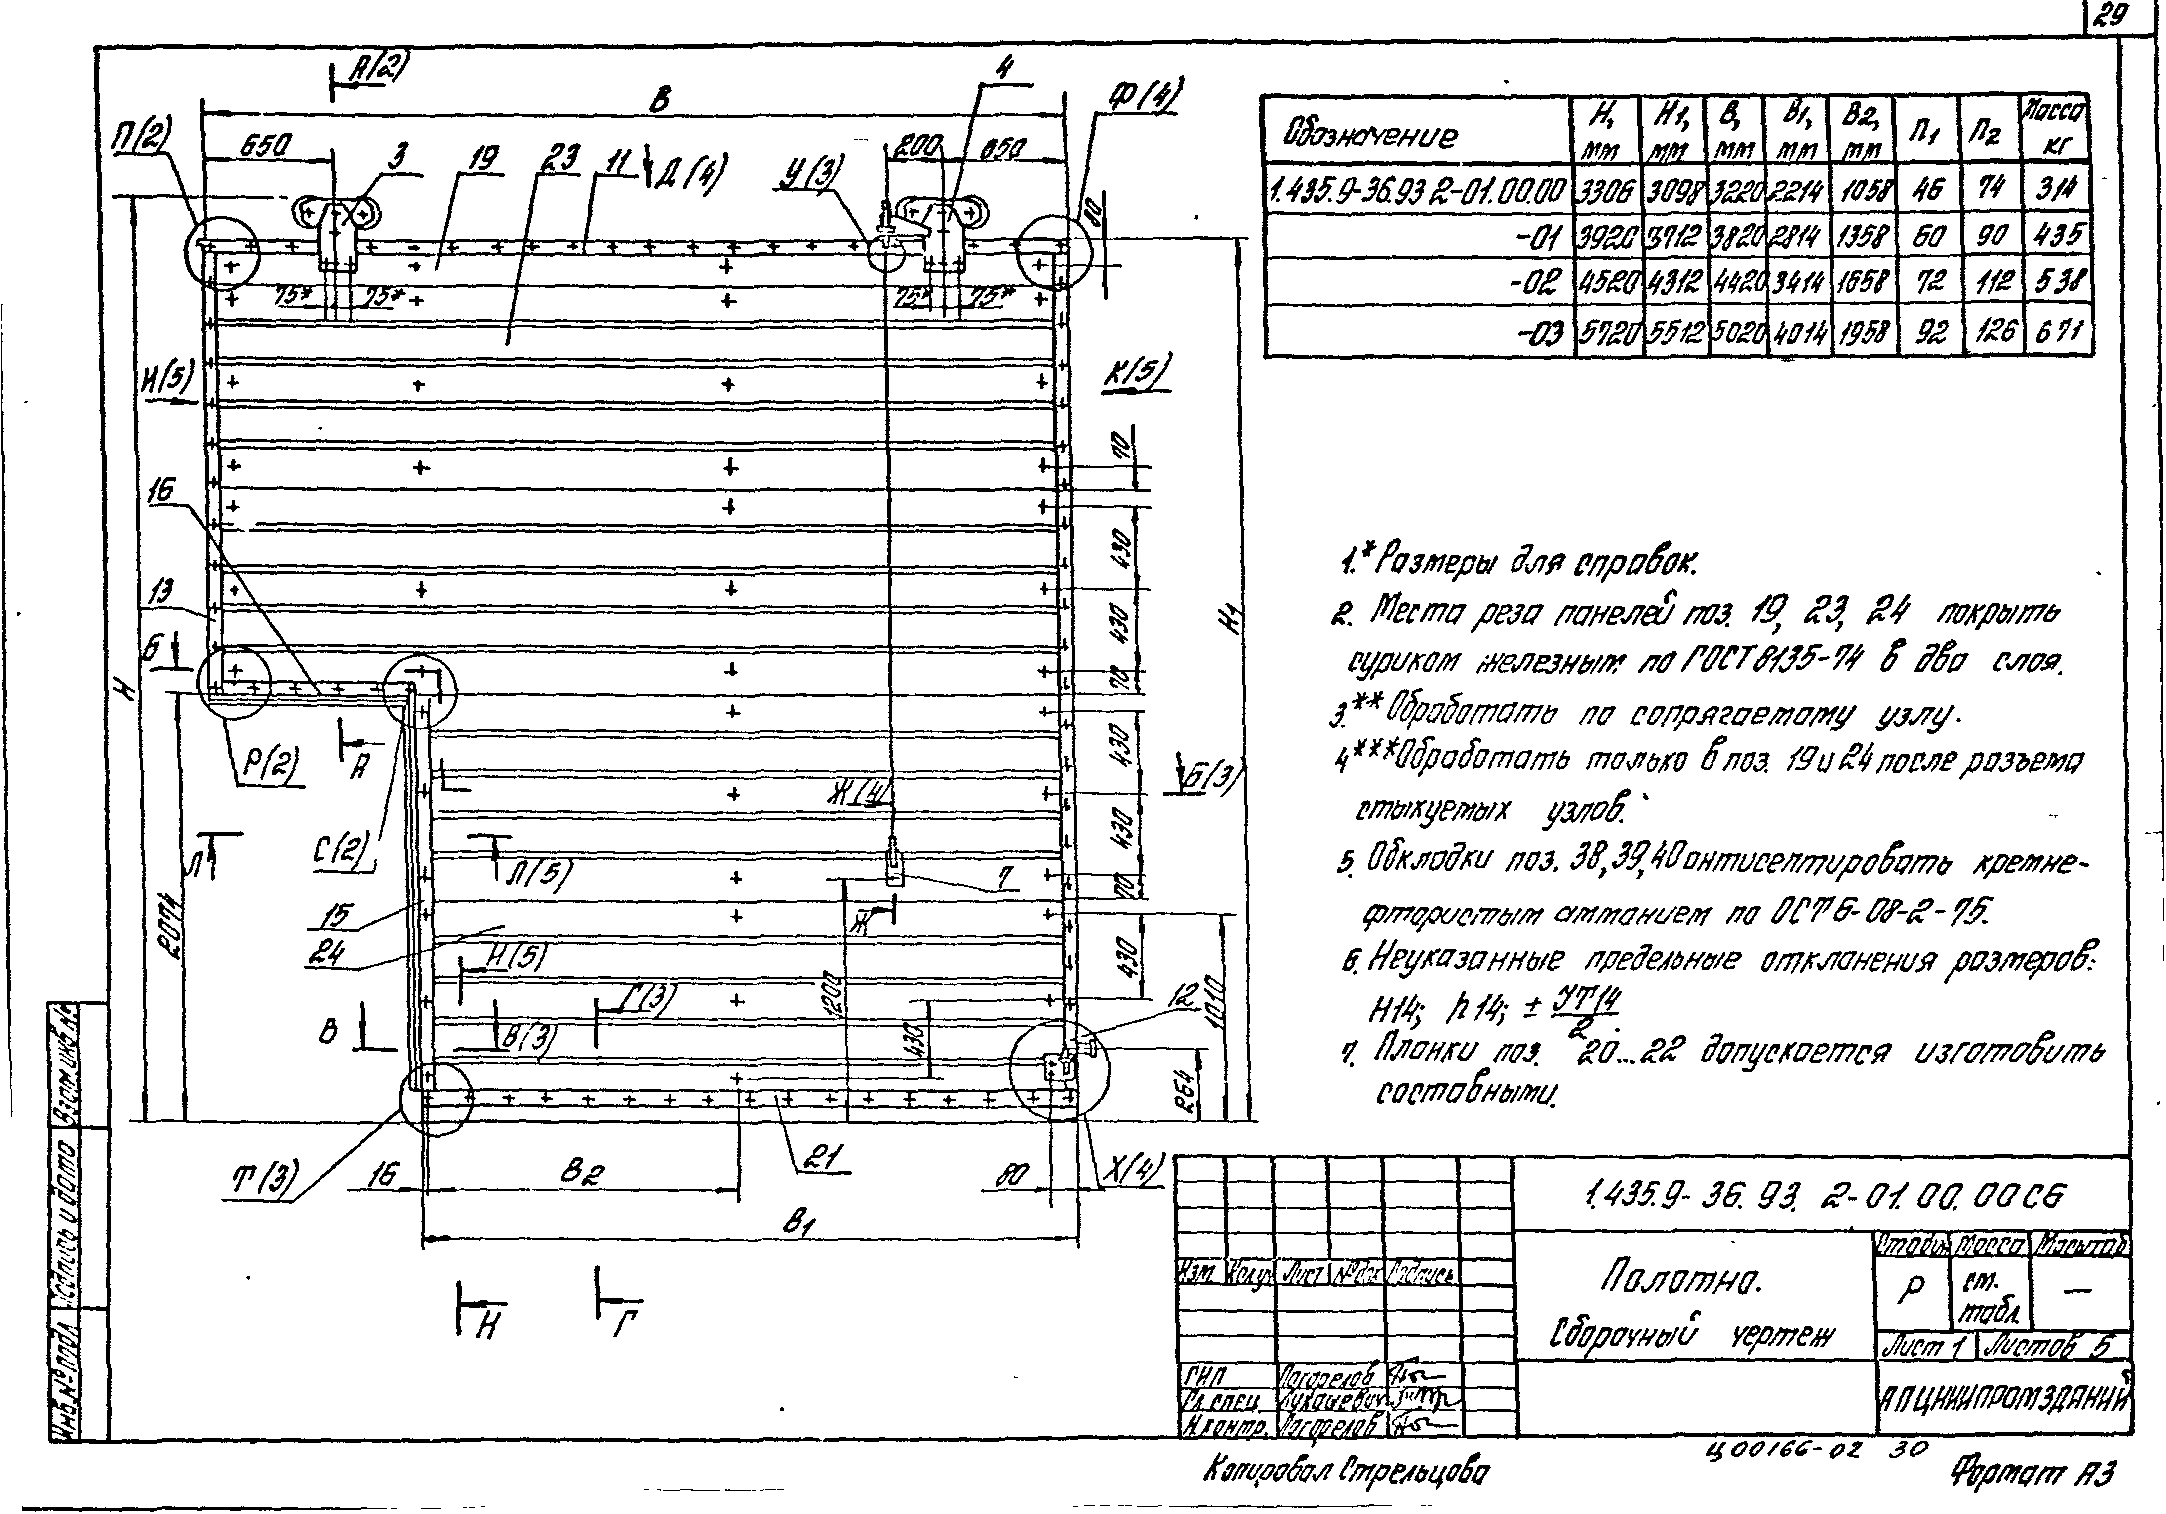 29
А(2)
В
4
Ф(4)
П(2)
650
3
19
23
11
Д(4)
У(3)
200
650
80
75*
75*
75*
75*
И(5)
К(5)
70
16
430
13
430
Н1
Б
Н
70
Р(2)
А
430
Б(3)
Ж(4)
С(2)
430
Л
Л(5)
7
70
15
Ж
2074
24
Н(5)
430
1200
Г(3)
12
1010
В
В(3)
430
264
Т(3)
16
В2
21
80
Х(4)
В1
Н
Г
Обозначение Н, мм Н1, мм В, мм В1, мм В2, мм П1 П2 Масса кг
1.435.9-36.93 2-01.00.00 3306 3098 3220 2214 1058 46 74 314
-01 3920 3712 3820 2814 1358 60 90 435
-02 4520 4312 4420 3414 1658 72 112 538
-03 5720 5512 5020 4014 1958 92 126 671
1.* Размеры для справок.
2. Места реза панелей поз. 19, 23, 24 покрыть
суриком железным по ГОСТ 8135-74 в два слоя.
3.** Обработать по сопрягаемому узлу.
4*** Обработать только в поз. 19 и 24 после разъема
стыкуемых узлов.
5. Обкладки поз. 38, 39, 40 антисептировать кремне-
фтористым аммонием по ОСТ 6-08-2-75.
6. Неуказанные предельные отклонения размеров:
Н14; h14; ± УТ14/2.
7. Планки поз. 20...22 допускается изготовить
составными.
1.435.9-36.93. 2-01.00.00СБ
Изм Кол.уч Лист №док Подпись
Полотно.
Сборочный чертеж
Стадия Масса Масштаб
Р см. табл —
Лист 1 Листов 5
ГИП Погорелов
Гл.спец. Лукашевич
Н.контр. Погорелов
АПЦНИИПРОМЗДАНИЙ
Взам.инв.№
Подпись и дата
Инв.№ подл
Копировал Стрельцова
Ц00166-02 30
Формат А3